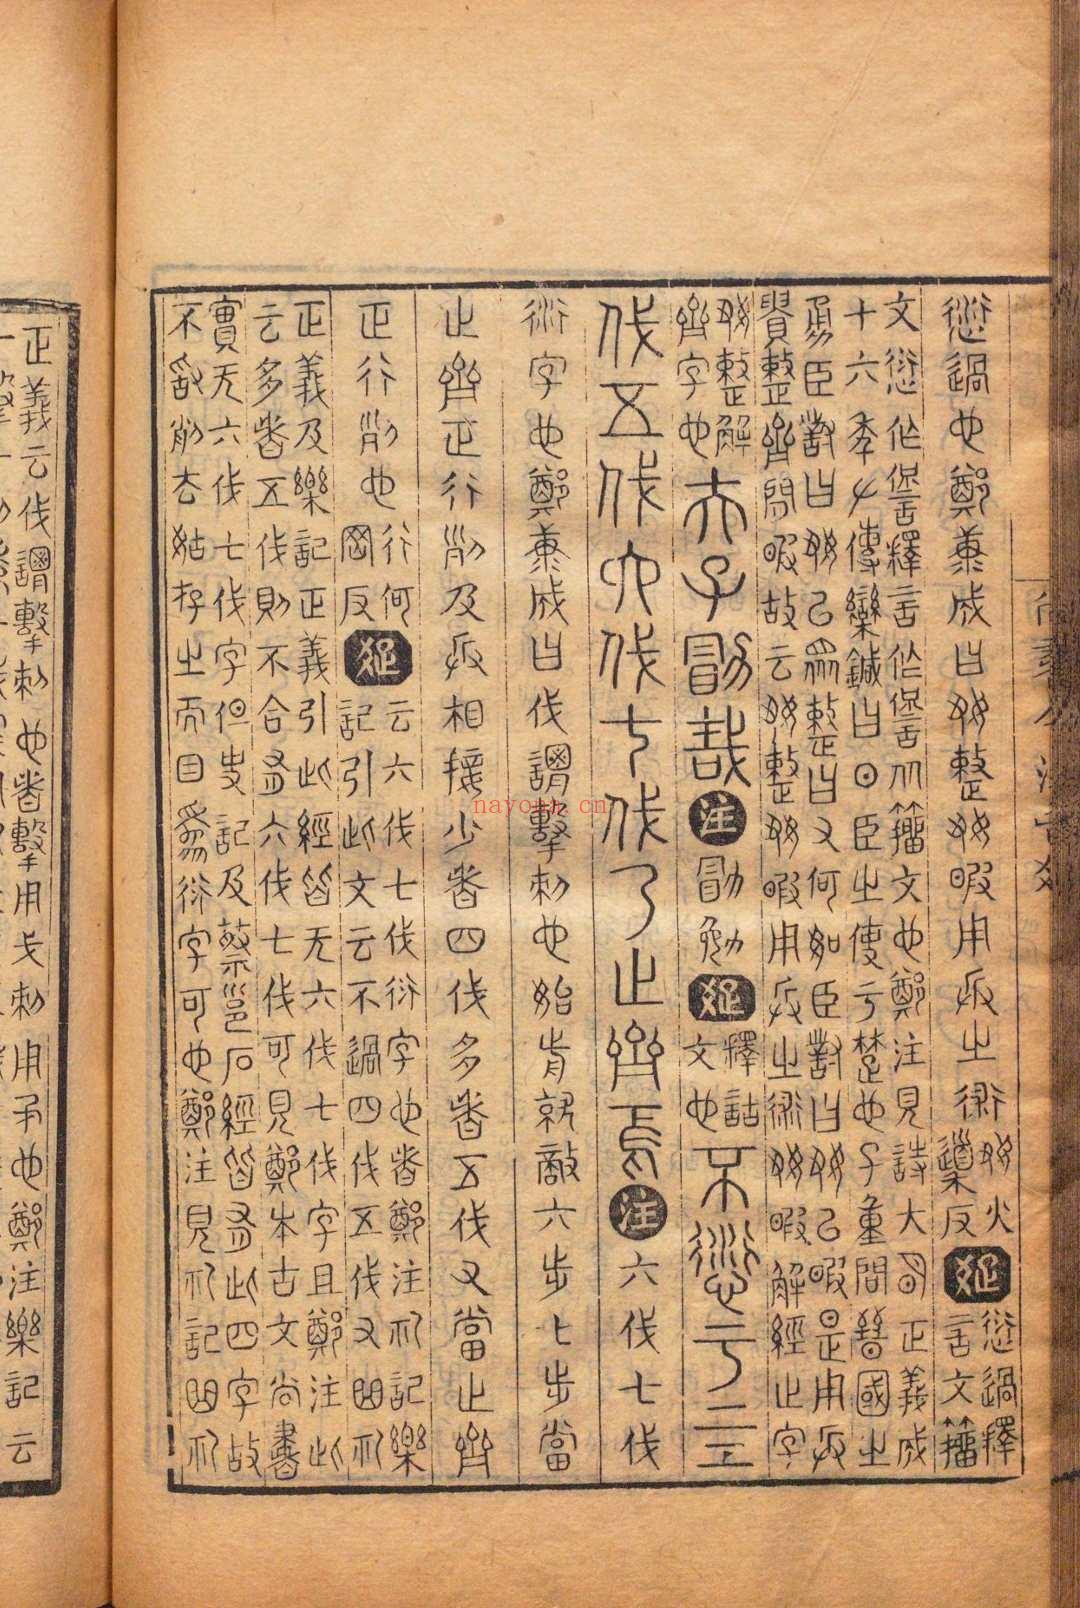 愆過也鄭康成曰好整好暇用兵之術好火
反疏愆過釋
言文籀
文愆作𠎝釋言作𠎝即籀文也鄭注見詩大明正義成
十六年左傳欒鍼曰日臣之使于楚也子重問晉國之
勇臣對曰好以眾整曰又何如臣對曰好以暇是用兵
貴整齊閒暇故云好整好暇用兵之術好暇解經止字
好整解
齊字也夫子勖哉注勖勉疏釋詁
文也不愆于亖
伐五伐六伐七伐乃止齊焉注六伐七伐
衍字也鄭康成曰伐謂擊刺也始前就敵六步七步當
止齊正行列及兵相接少者四伐多者五伐又當止齊
正行列也行何
岡反疏云六伐七伐衍字也者鄭注礼記樂
記引此文云不過四伐五伐又曲礼
正義及樂記正義引此經皆无六伐七伐字且鄭注此
云多者五伐則不合有六伐七伐可見鄭本古文尚書
實无六伐七伐字但史記及蔡邕石經皆有此四字故
不敢削去姑存之而目為衍字可也鄭注見礼記曲礼
正義云伐謂擊刺也者擊用戈刺用矛也鄭注樂記云
nayona.cn